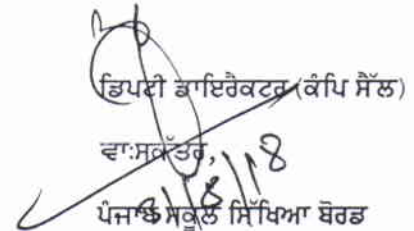 ਡਿਪਟੀ ਡਾਇਰੈਕਟਰ (ਕੰਪਿ ਸੈੱਲ)
ਵਾ:ਸਕੱਤਰ,
8/8/18
ਪੰਜਾਬ ਸਕੂਲ ਸਿੱਖਿਆ ਬੋਰਡ